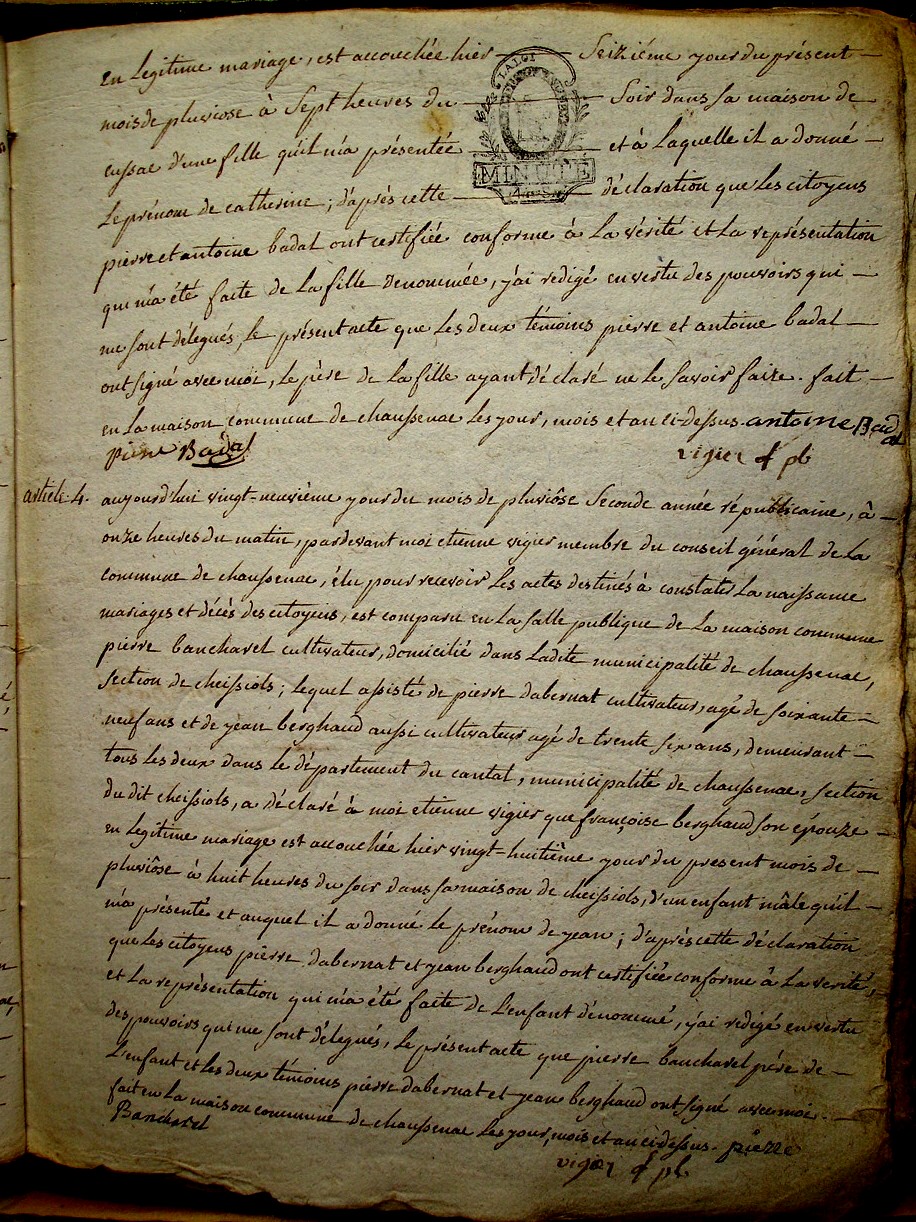 en Legitime mariage, est accouchée hier — Seiziéme jour du présent —
mois de pluviose à Sept heures du — Soir dans sa maison de
cussac d'une fille qu'il m'a présentée — et à Laquelle il a donné —
Le prénom de catherine; d'après cette — déclaration que Les citoyens
pierre et antoine badal ont certifiée conforme à La vérité et La représentation
qui m'a été faite de La fille dénommée, j'ai redigé en vertu des pouvoirs qui —
me sont délegués, le présent acte que Les deux témoins pierre et antoine badal —
ont signé avec moi, Le père de La fille ayant déclaré ne Le savoir faire. fait —
en La maison commune de chaussenac Les jour, mois et an ci-dessus. antoine Badal
pierre Badal
vigier
LA LOI
MINUTE
article 4.
aujourd'hui vingt-neuvième jour du mois de pluviôse Seconde année républicaine, à —
onze heures du matin, pardevant moi etienne vigier membre du conseil général de La
commune de chaussenac, élu pour recevoir Les actes destinés à constater La naissance
mariages et décès des citoyens, est comparu en La salle publique de La maison commune
pierre bancharel cultivateur, domicilié dans Ladite municipalité de chaussenac,
section de cheissiols; lequel assisté de pierre dabernat cultivateur, agé de soixante —
neuf ans et de jean berghaud aussi cultivateur agé de trente six ans, demeurant —
tous les deux dans le département du cantal, municipalité de chaussenac, section
du dit cheissiols, a déclaré à moi etienne vigier que françoise berghaud son épouze —
en Legitime mariage est accouchée hier vingt-huitième jour du present mois de —
pluviôse à huit heures du soir dans sa maison de cheissiols, d'un enfant mâle qu'il —
m'a présenté et auquel il a donné le prénom de jean; d'après cette déclaration
que Les citoyens pierre dabernat et jean berghaud ont certifiée conforme à La verité,
et La représentation qui m'a été faite de L'enfant dénommé, j'ai redigé en vertu
des pouvoirs qui me sont délegués, Le présent acte que pierre bancharel père de —
L'enfant et les deux témoins pierre dabernat et jean berghaud ont signé avec moi. —
fait en La maison commune de chaussenac Les jour, mois et an ci dessus. pierre
Bancharel
vigier